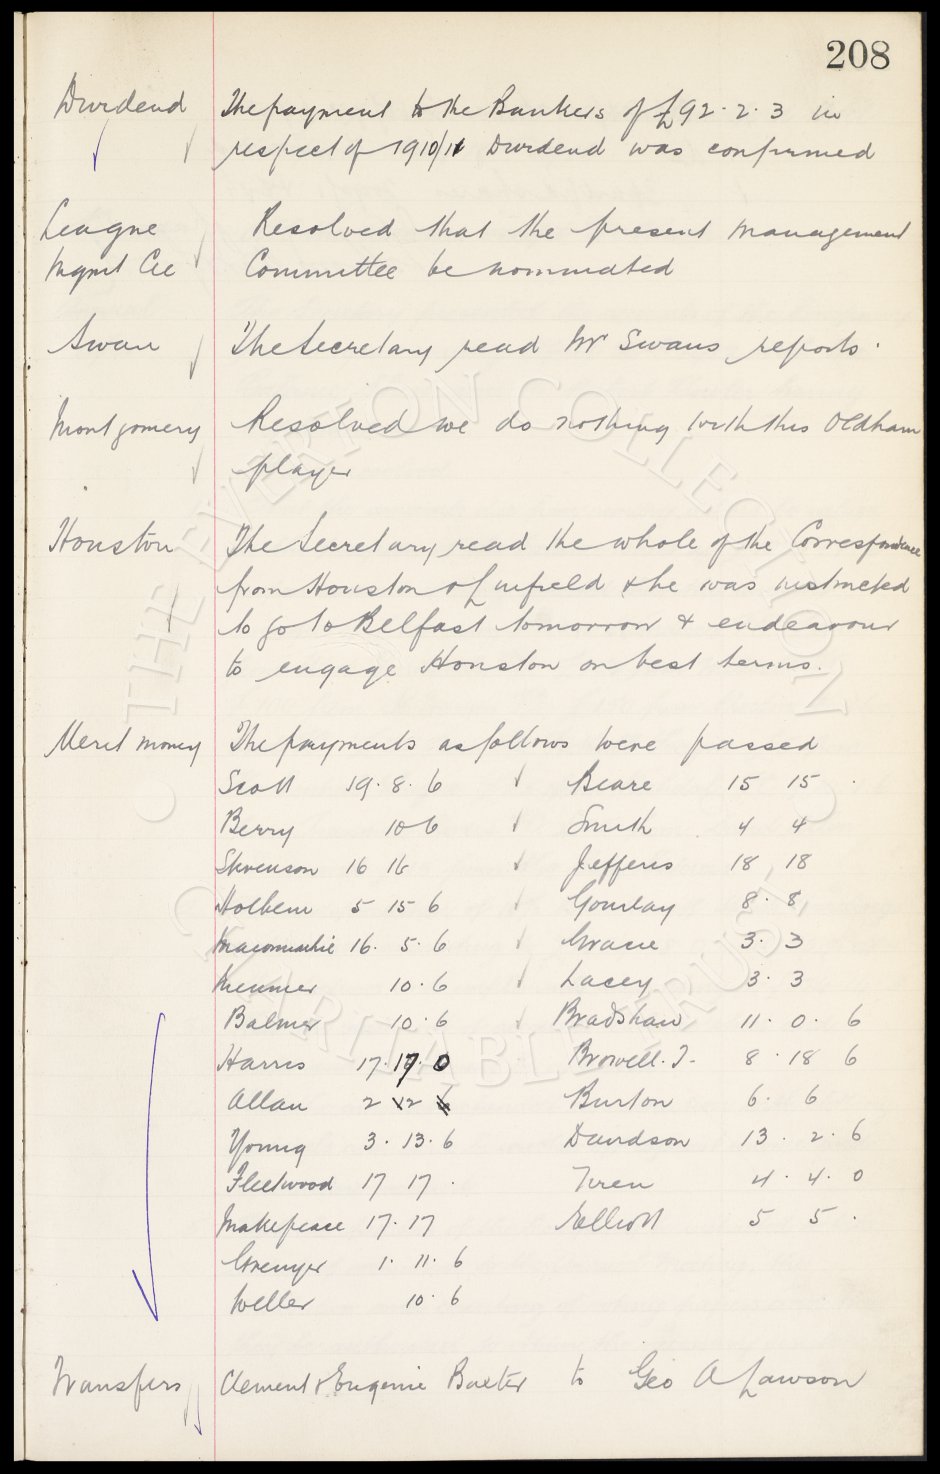 208
Dividend The payment to the Bankers of £92.2.3 in
respect of 1910/11 Dividend was confirmed
League Resolved that the present management
Mgmt Cee Committee be nominated
Swan The Secretary read Mr Swans reports.
Montgomery Resolved we do nothing with this Oldham
player
Houston The Secretary read the whole of the Correspondence
from Houston of Linfield & he was instructed
to go to Belfast tomorrow & endeavour
to engage Houston on best terms.
Merit money The payments as follows were passed
Scott 19. 8. 6 Beare 15 15 .
Berry 10 6 Smith 4 4
Stevenson 16 16 Jefferis 18 18
Holbem 5 15 6 Gourlay 8. 8
Maconnachie 16. 5. 6 Gracie 3. 3
Meunier 10. 6 Lacey 3. 3
Balmer 10. 6 Bradshaw 11. 0. 6
Harris 17. 17. 0 Browell. T. 8. 18 6
Allan 2 12 6 Burton 6. 6
Young 3. 13. 6 Davidson 13. 2. 6
Fleetwood 17 17 . Uren 4. 4. 0
Makepeace 17. 17 Elliott 5 5 .
Grenyer 1. 11. 6
Weller 10. 6
Transfers Clement & Eugenie Baxter to Geo A Lawson
THE EVERTON COLLECTION CHARITABLE TRUST